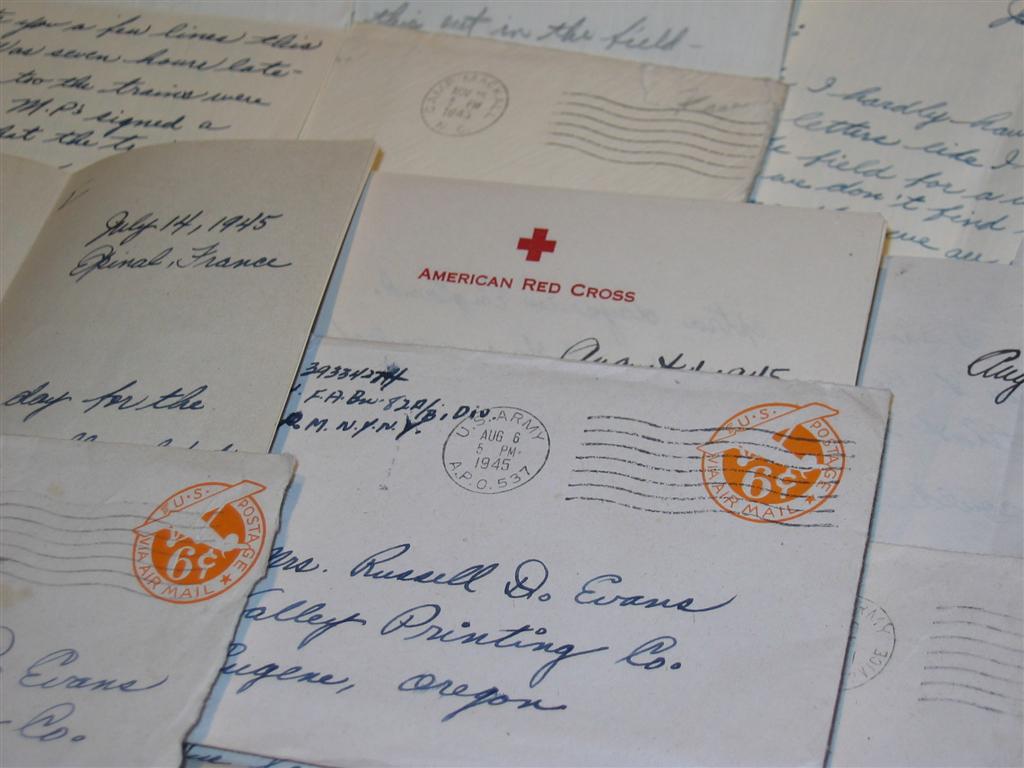 you a few lines this
was seven hours late-
too the trains were
M.P.'s signed a
but the
this out in the field-
1945
I hardly
letters like I
field for a
don't find
are
July 14, 1945
Epinal, France
day for the
AMERICAN RED CROSS
1945
Aug
39334274
F.A. Bn.
Div.
N.Y. N.Y.
U.S. ARMY
AUG 6
5 PM
1945
A.P.O. 537
U.S. POSTAGE
6¢
VIA AIR MAIL
Mrs. Russell D. Evans
Valley Printing Co.
Eugene, Oregon
U.S. POSTAGE
6¢
VIA AIR MAIL
Evans
Co.